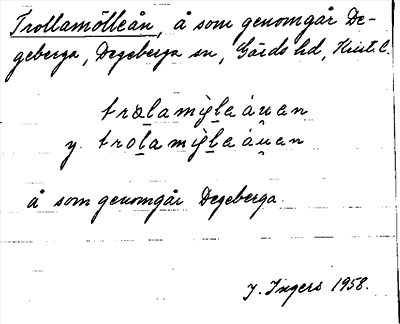 Trollamölleån, å som genomgår De-
geberga, Degeberga sn, Gärds hd, Krist. l.
trolamìglea ́uen
y. trolamìglea ́uen
å som genomgår Degeberga.
I. Ingers 1958.